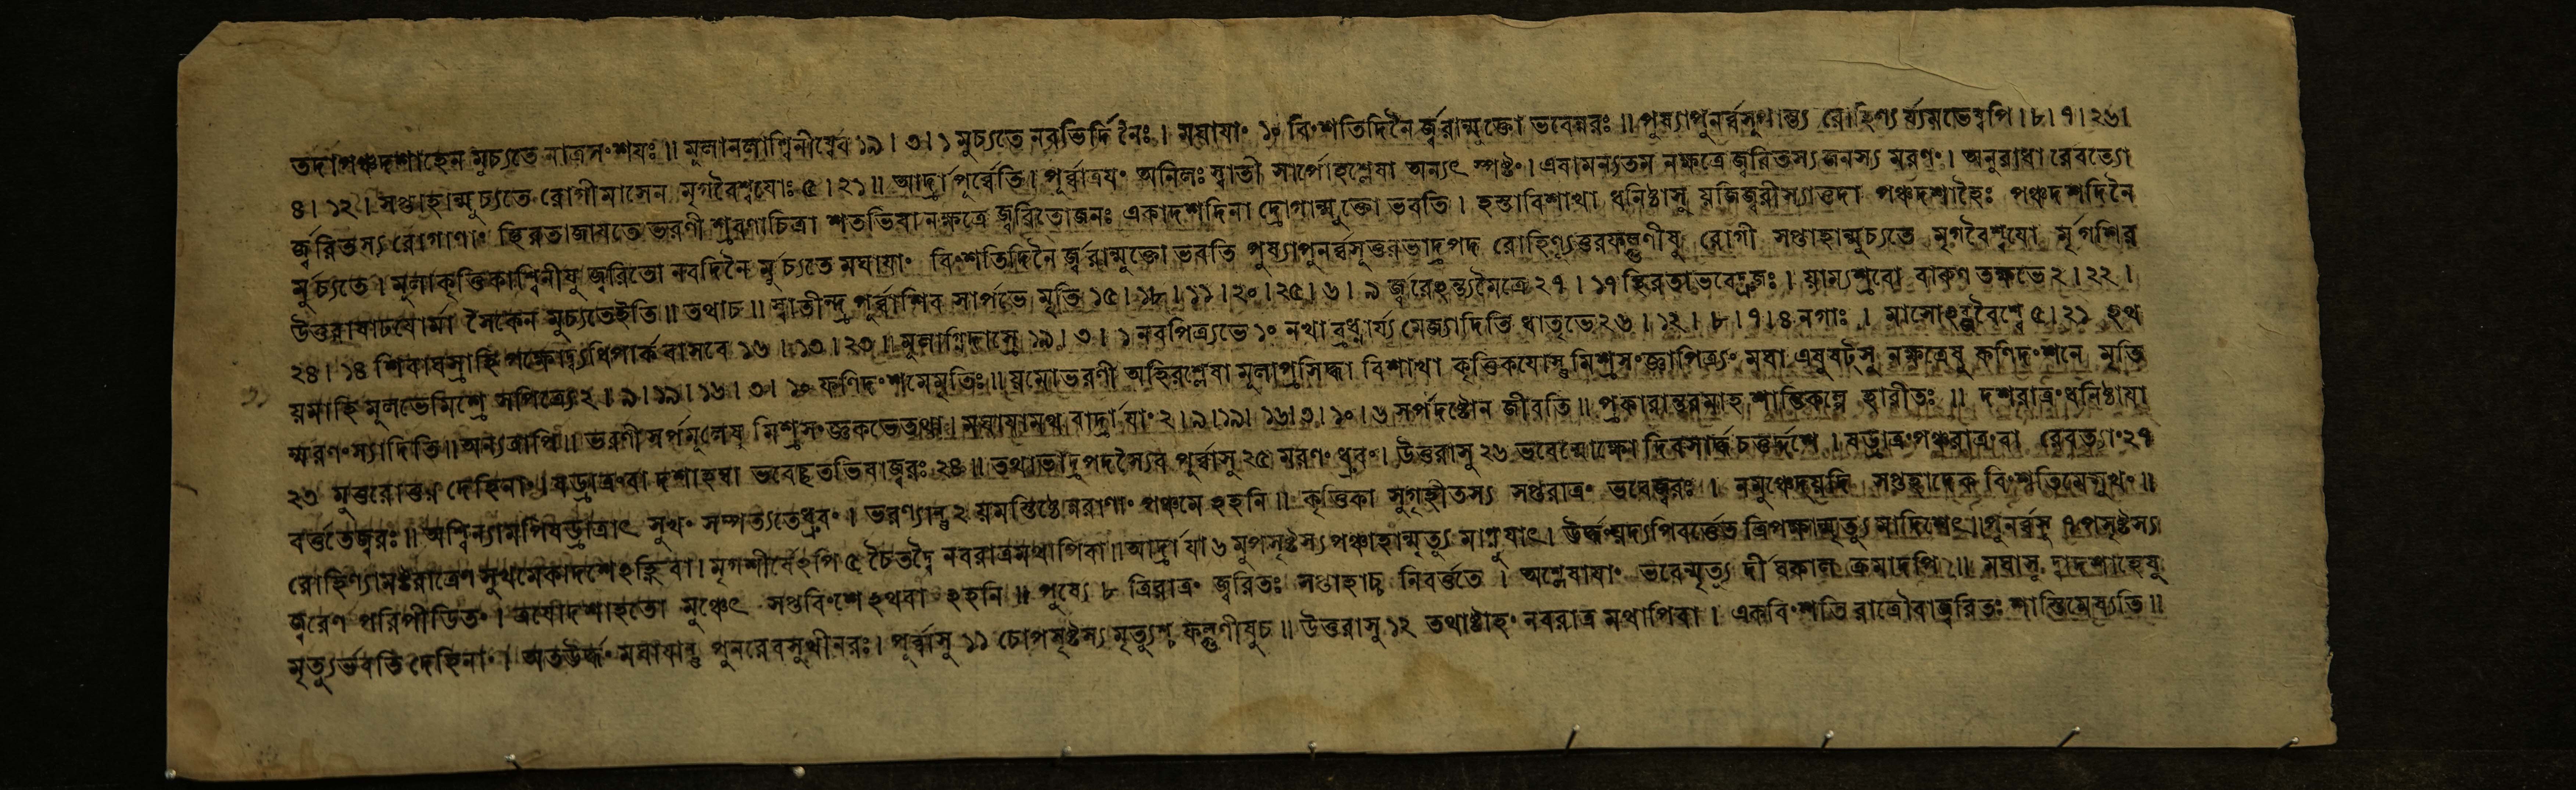 তদাপঞ্চদশাহেন মুচ্যতে নাত্রসংশয়ঃ ॥ মূলানলাশ্বিনীষ্বেব ১৯ । ৩ । ১ মুচ্যতে নবভির্দিনৈঃ । মঘাযাং ১০ বিংশতিদিনৈ র্জ্বরান্মুক্তো ভবেন্নরঃ ॥ পুষ্যাপুনর্ব্বসুথান্ত্য রোহিণ্য র্য্যমভেষ্বপি । ৮ । ৭ । ২৬ ।
৪ । ১২ । সপ্তাহান্মুচ্যতে রোগীমাসেন মৃগবৈশ্বযোঃ ৫ । ২১ ॥ আর্দ্রাপূর্ব্বেতি । পূর্ব্বাত্রযং অনিলঃ স্বাতী সার্পোহশ্লেষা অন্যৎ স্পষ্টং । এষামন্যতম নক্ষত্রে জ্বরিতস্য জনস্য মরণং । অনুরাধা রেবত্যো
র্জ্বরিতস্য রোগাণাং স্থিরতাজাযতে ভরণী শ্রবণাচিত্রা শতভিষা নক্ষত্রে জ্বরিতোজনঃ একাদশদিনা দ্রোগান্মুক্তো ভবতি । হস্তাবিশাখা ধনিষ্ঠাসু যদিজ্বরীস্যাত্তদা পঞ্চদশাহৈঃ পঞ্চদশদিনৈ
র্মুচ্যতে । মূলাকৃত্তিকাশ্বিনীষু জ্বরিতো নবদিনৈ র্মুচ্যতে মঘাযাং বিংশতিদিনৈ র্জ্বরান্মুক্তো ভবতি পুষ্যাপুনর্ব্বসূত্তরভাদ্রপদ রোহিণ্যুত্তরফল্গুণীষু রোগী সপ্তাহান্মুচ্যতে মৃগবৈশ্বযো র্মৃগশির
উত্তরাষাঢযোর্মা সৈকেন মুচ্যতেইতি ॥ তথাচ ॥ স্বাতীন্দ্র পূর্ব্বাশিব সার্পভে মৃতি ১৫ । ১৮ । ১১ । ২০ । ২৫ । ৬ । ৯ র্জ্বরেহন্ত্যমৈত্রে ২৭ । ১৭ স্থিরতাভবেদ্রুজঃ । যাম্যশ্রবো বারুণ তক্ষভে ২ । ২২ ।
২৪ । ১৪ শিবাঘস্রাহি পক্ষোদ্ব্যধিপার্ক বাসবে ১৬ । ১৩ । ২৩ ॥ মূলাগ্নিদাস্রে ১৯ । ৩ । ১ নবপিত্র্যভে ১০ নখা বুধ্নার্য্য মেজ্যাদিতি ধাতৃভে ২৬ । ১২ । ৮ । ৭ । ৪ নগাঃ । মাসোহব্জবৈশ্বে ৫ । ২১ হথ
যমাহি মূলভেমিশ্রে সপিত্র্যে ২ । ৯ । ১৯ । ১৬ । ৩ । ১০ ফণিদংশমেমৃতিঃ ॥ যমোভরণী অহিরশ্লেষা মূলাপ্রসিদ্ধা বিশাখা কৃত্তিকযোস্তু মিশ্রসংজ্ঞাপিত্র্যং মঘা এষুষট্সু নক্ষত্রেষু ফণিদংশনে মৃতি
র্ম্মরণংস্যাদিতি ॥ অন্যত্রাপি ॥ ভরণী সর্পমূলেষু মিশ্রসংজ্ঞকভেতথা । মঘাযামথ বার্দ্রাযাং ২ । ৯ । ১৯ । ১৬ । ৩ । ১০ । ৬ সর্পদষ্টোন জীবতি ॥ প্রকারান্তরমাহ শান্তিকল্পে হারীতঃ ॥ দশরাত্রংধনিষ্ঠাযা
২৩ মুত্তরোত্তর দেহিনাং । ষড্রাত্রংবা দশাহম্বা ভবেচ্ছতভিষাজ্বরঃ ২৪ ॥ তথাভাদ্রপদস্যৈব পূর্ব্বাসু ২৫ মরণং ধ্রুবং । উত্তরাসু ২৬ ভবেন্মোক্ষো দিবসার্দ্ধচতুর্দ্দশে । ষড্রাত্রংপঞ্চরাত্রংবা রেবত্যাং ২৭
বর্ত্ততেজ্বরঃ ॥ অশ্বিন্যামপিষড্রাত্রাৎ সুখং সম্পত্যতেধ্রুবং । ভরণ্যান্তু ২ যমন্তিষ্ঠেন্নরাণাং পঞ্চমে হহনি ॥ কৃত্তিকা সুগৃহীতস্য সপ্তরাত্রং ভবেজ্জ্বরঃ । নমুঞ্চেদ্যদি সপ্তাহাদেক বিংশতিমেসুখং ॥
রোহিণ্যামষ্টরাত্রেণ সুখমেকাদশেহহ্নি বা । মৃগশীর্ষেহপি ৫ চৈতদ্বৈ নবরাত্রমথাপিবা ॥ আর্দ্রাযা ৬ মুপসৃষ্টস্য পঞ্চাহান্মৃত্যু মাপ্নুযাৎ । ঊর্দ্ধন্যদ্যপিবর্ত্তেত ত্রিপক্ষান্মৃত্যু মাদিশেৎ । পুনর্ব্বসু ৭ পসৃষ্টস্য
জ্বরেণ পরিপীডিতং । ত্রযোদশাহতো মুঞ্চেৎ সপ্তবিংশে হথবা হহনি ॥ পুষ্যে ৮ ত্রিরাত্রং জ্বরিতঃ সপ্তাহাচ্চ নিবর্ত্ততে । অশ্লেষাযাং ভবেন্মৃত্যু র্দীর্ঘকাল ক্রমাদপি ॥ মঘাসু দ্বাদশাহেষু
মৃত্যুর্ভবতি দেহিনাং । অতঊর্দ্ধং মঘাযান্তু পুনরেবসুখীনরঃ । পূর্ব্বাসু ১১ চোপসৃষ্টস্য মৃত্যুশ্চ ফল্গুণীষুচ ॥ উত্তরাসু ১২ তথাষ্টাহং নবরাত্র মথাপিবা । একবিংশতি রাত্রৌবাজ্বরিতঃ শান্তিমেষ্যতি ॥